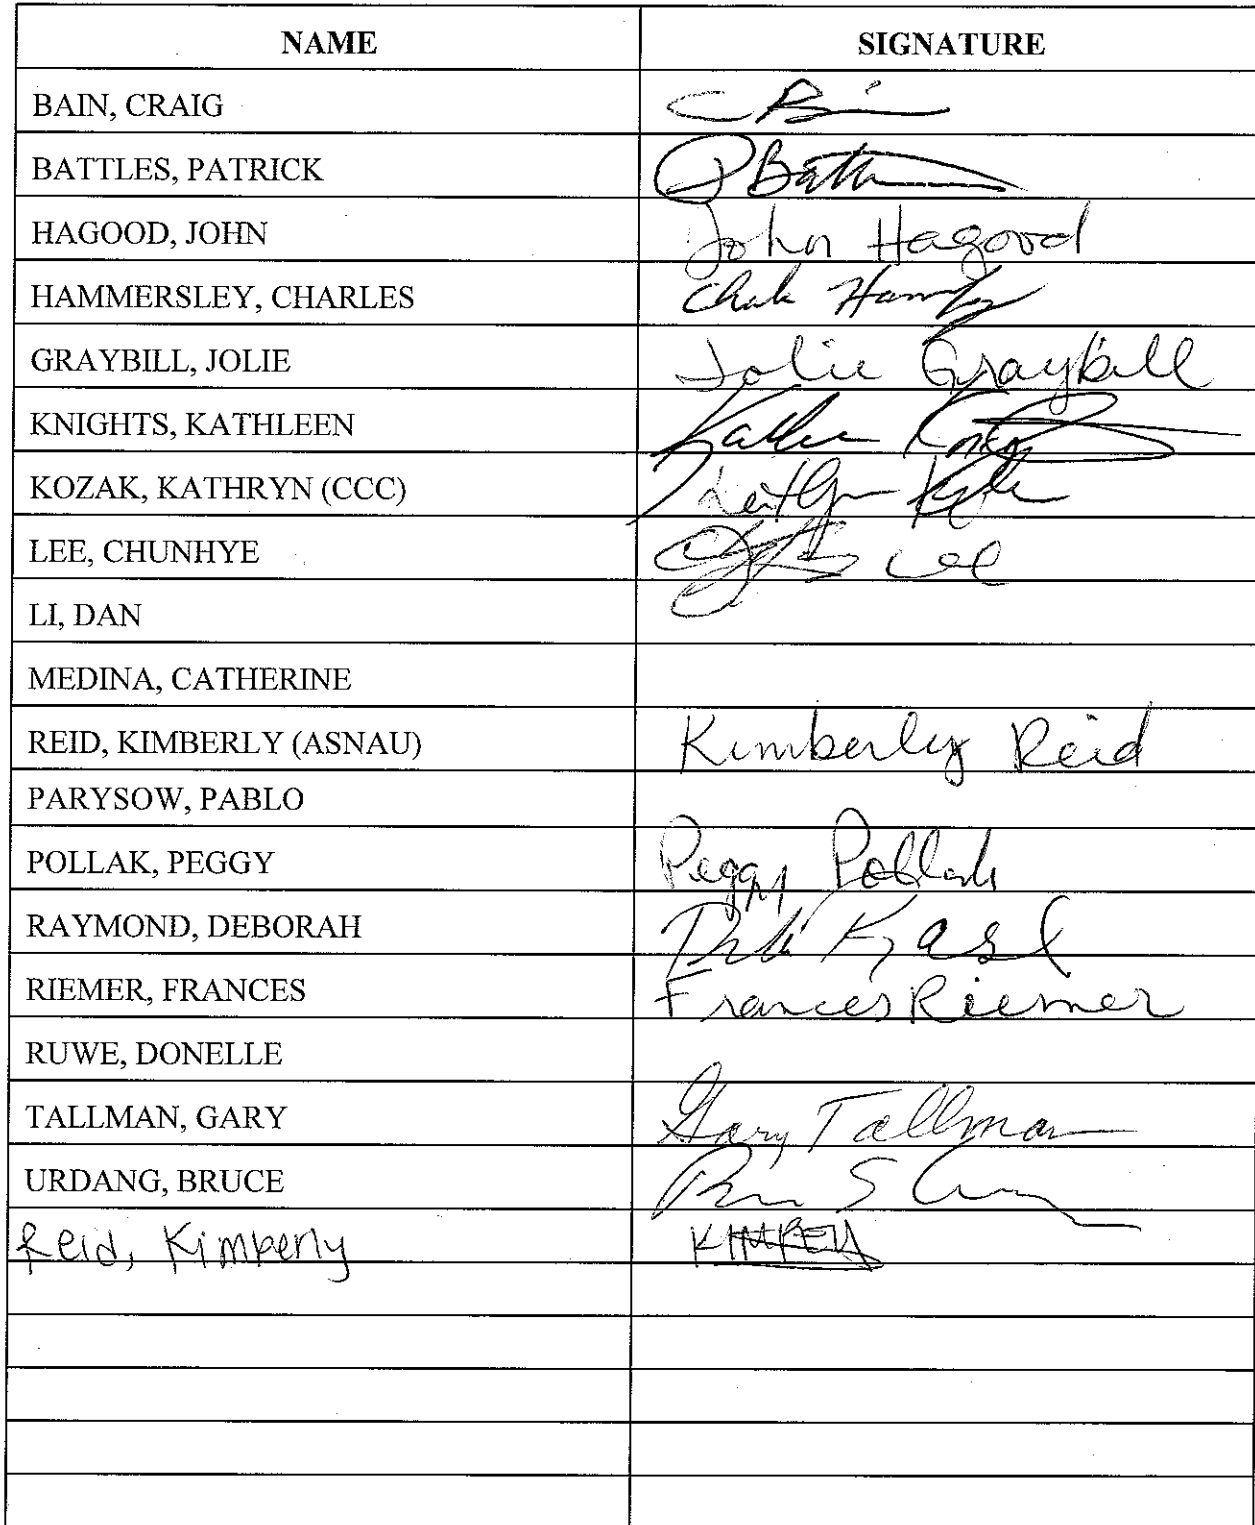 NAME SIGNATURE
BAIN, CRAIG C Bain
BATTLES, PATRICK P Batt
HAGOOD, JOHN John Hagood
HAMMERSLEY, CHARLES
GRAYBILL, JOLIE Jolie Graybill
KNIGHTS, KATHLEEN
KOZAK, KATHRYN (CCC)
LEE, CHUNHYE Lee
LI, DAN
MEDINA, CATHERINE
REID, KIMBERLY (ASNAU) Kimberly Reid
PARYSOW, PABLO
POLLAK, PEGGY Peggy Pollak
RAYMOND, DEBORAH
RIEMER, FRANCES Frances Riemer
RUWE, DONELLE
TALLMAN, GARY Gary Tallman
URDANG, BRUCE
Reid, Kimberly